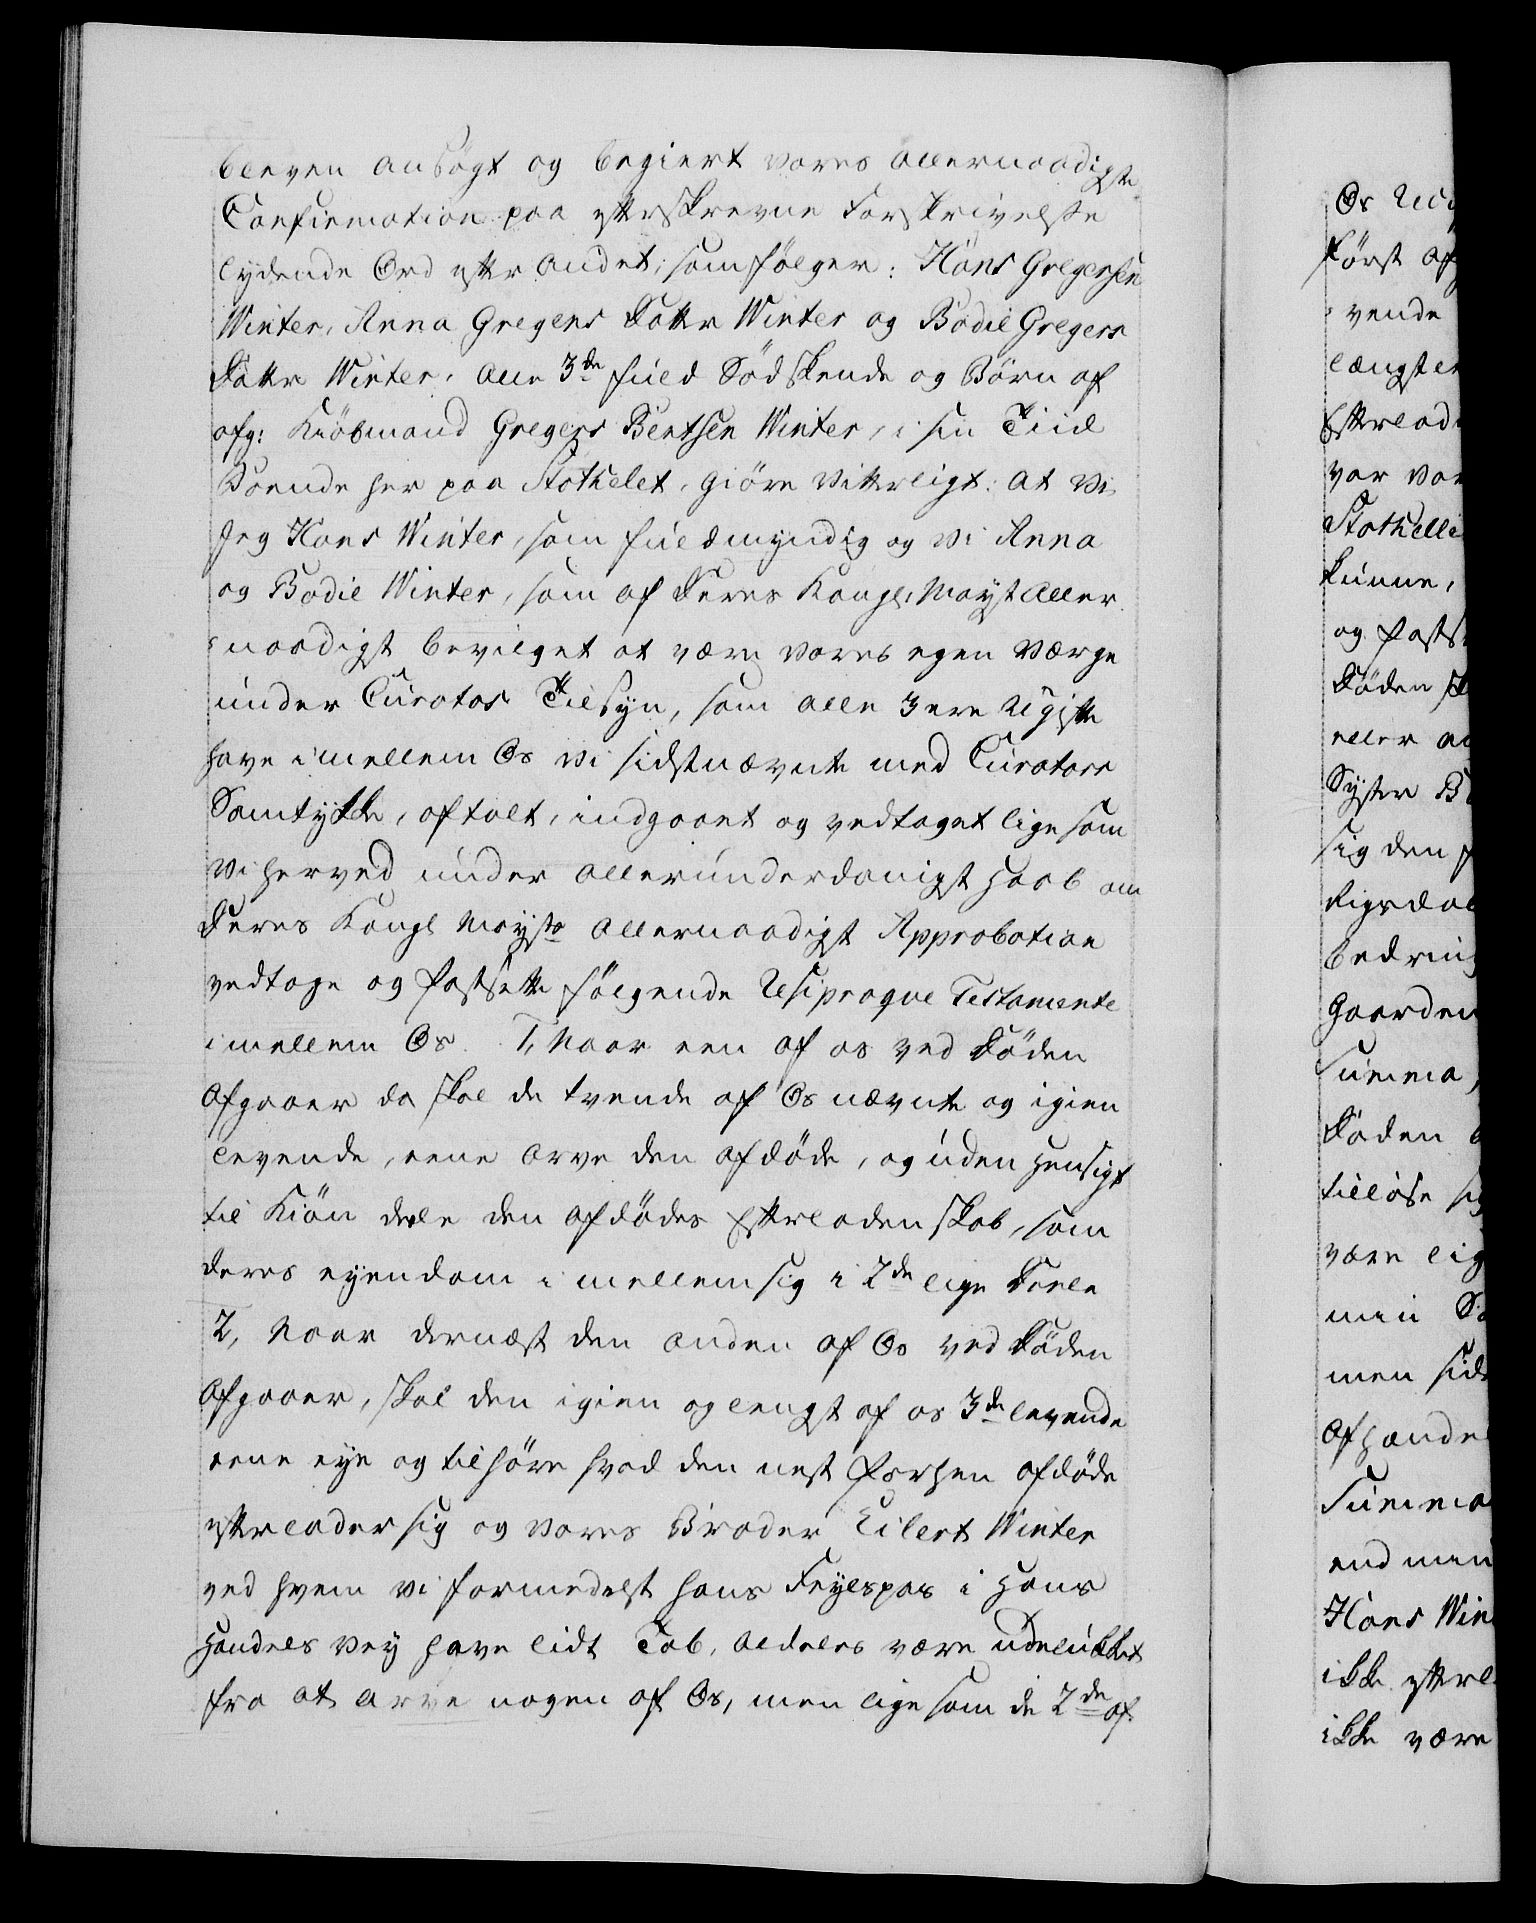 bleven ansögt og begiert vores allernaadigste
Confirmation paa efterskrevne Forskrivelse
lydende Ord efter andet, som fölger: Hans Gregersen
Winter, Anna Gregers Datter Winter og Bodil Gregers
Datter Winter, alle 3de fuld Södskende og Börn af
afg: Kiöbmand Gregers Bentsen Winter, i sin Tiid
Boende her paa Stothelet, giöre vitterligt: at vi
Jeg Hans Winter, som fuldmyndig og vi Anna
og Bodil Winter, som af Deres Kongl. Mayst aller
naadigst bevilget at være vores egen Værge
under Curators Tilsyn, som alle 3 ere Ugifte
have imellem Os vi sidstnævnte med Curators
Samtykke, aftalt, indgaaet og vedtaget lige som
vi herved under allerunderdanigst Haab om
Deres Kongl Maysts allernaadigst Approbation
vedtage og fastsette fölgende Resiproqve Testamente
imellem Os. 1, Naar een af os ved Döden
afgaaer da skal de tvende af Os nævnte og igien
levende, eene arve den afdöde, og uden Hensigt
til Kiön dele den afdödes Efterladenskab, som
deres eyendom imellem sig i 2de lige Deele
2, Naar dernæst den anden af Os ved Döden
afgaaer, skal den igien og lengst af os 3de levende
eene eye og tilhöre hvad den nest forhen afdöde
efterlader sig og vores Broder Eilert Winter
ved hvem vi formedelst hans Feylspas i Hans
Handels Vey have lidt Tab, aldeles være udelukket
fra at arve nogen af Os, men lige som de 2de af
Os
först af
vende
længstle
Efterlad
var vor
Stothelle
kunne,
og fasts
Döden sk
eller an
Syster B
sig den f
Rigsdal
bedring
Gaarden
Summa,
Döden
tillöse sig
være lig
min Sö
men sids
afhænde
Summa
end min
Hans Win
ikke efterl
ikke være